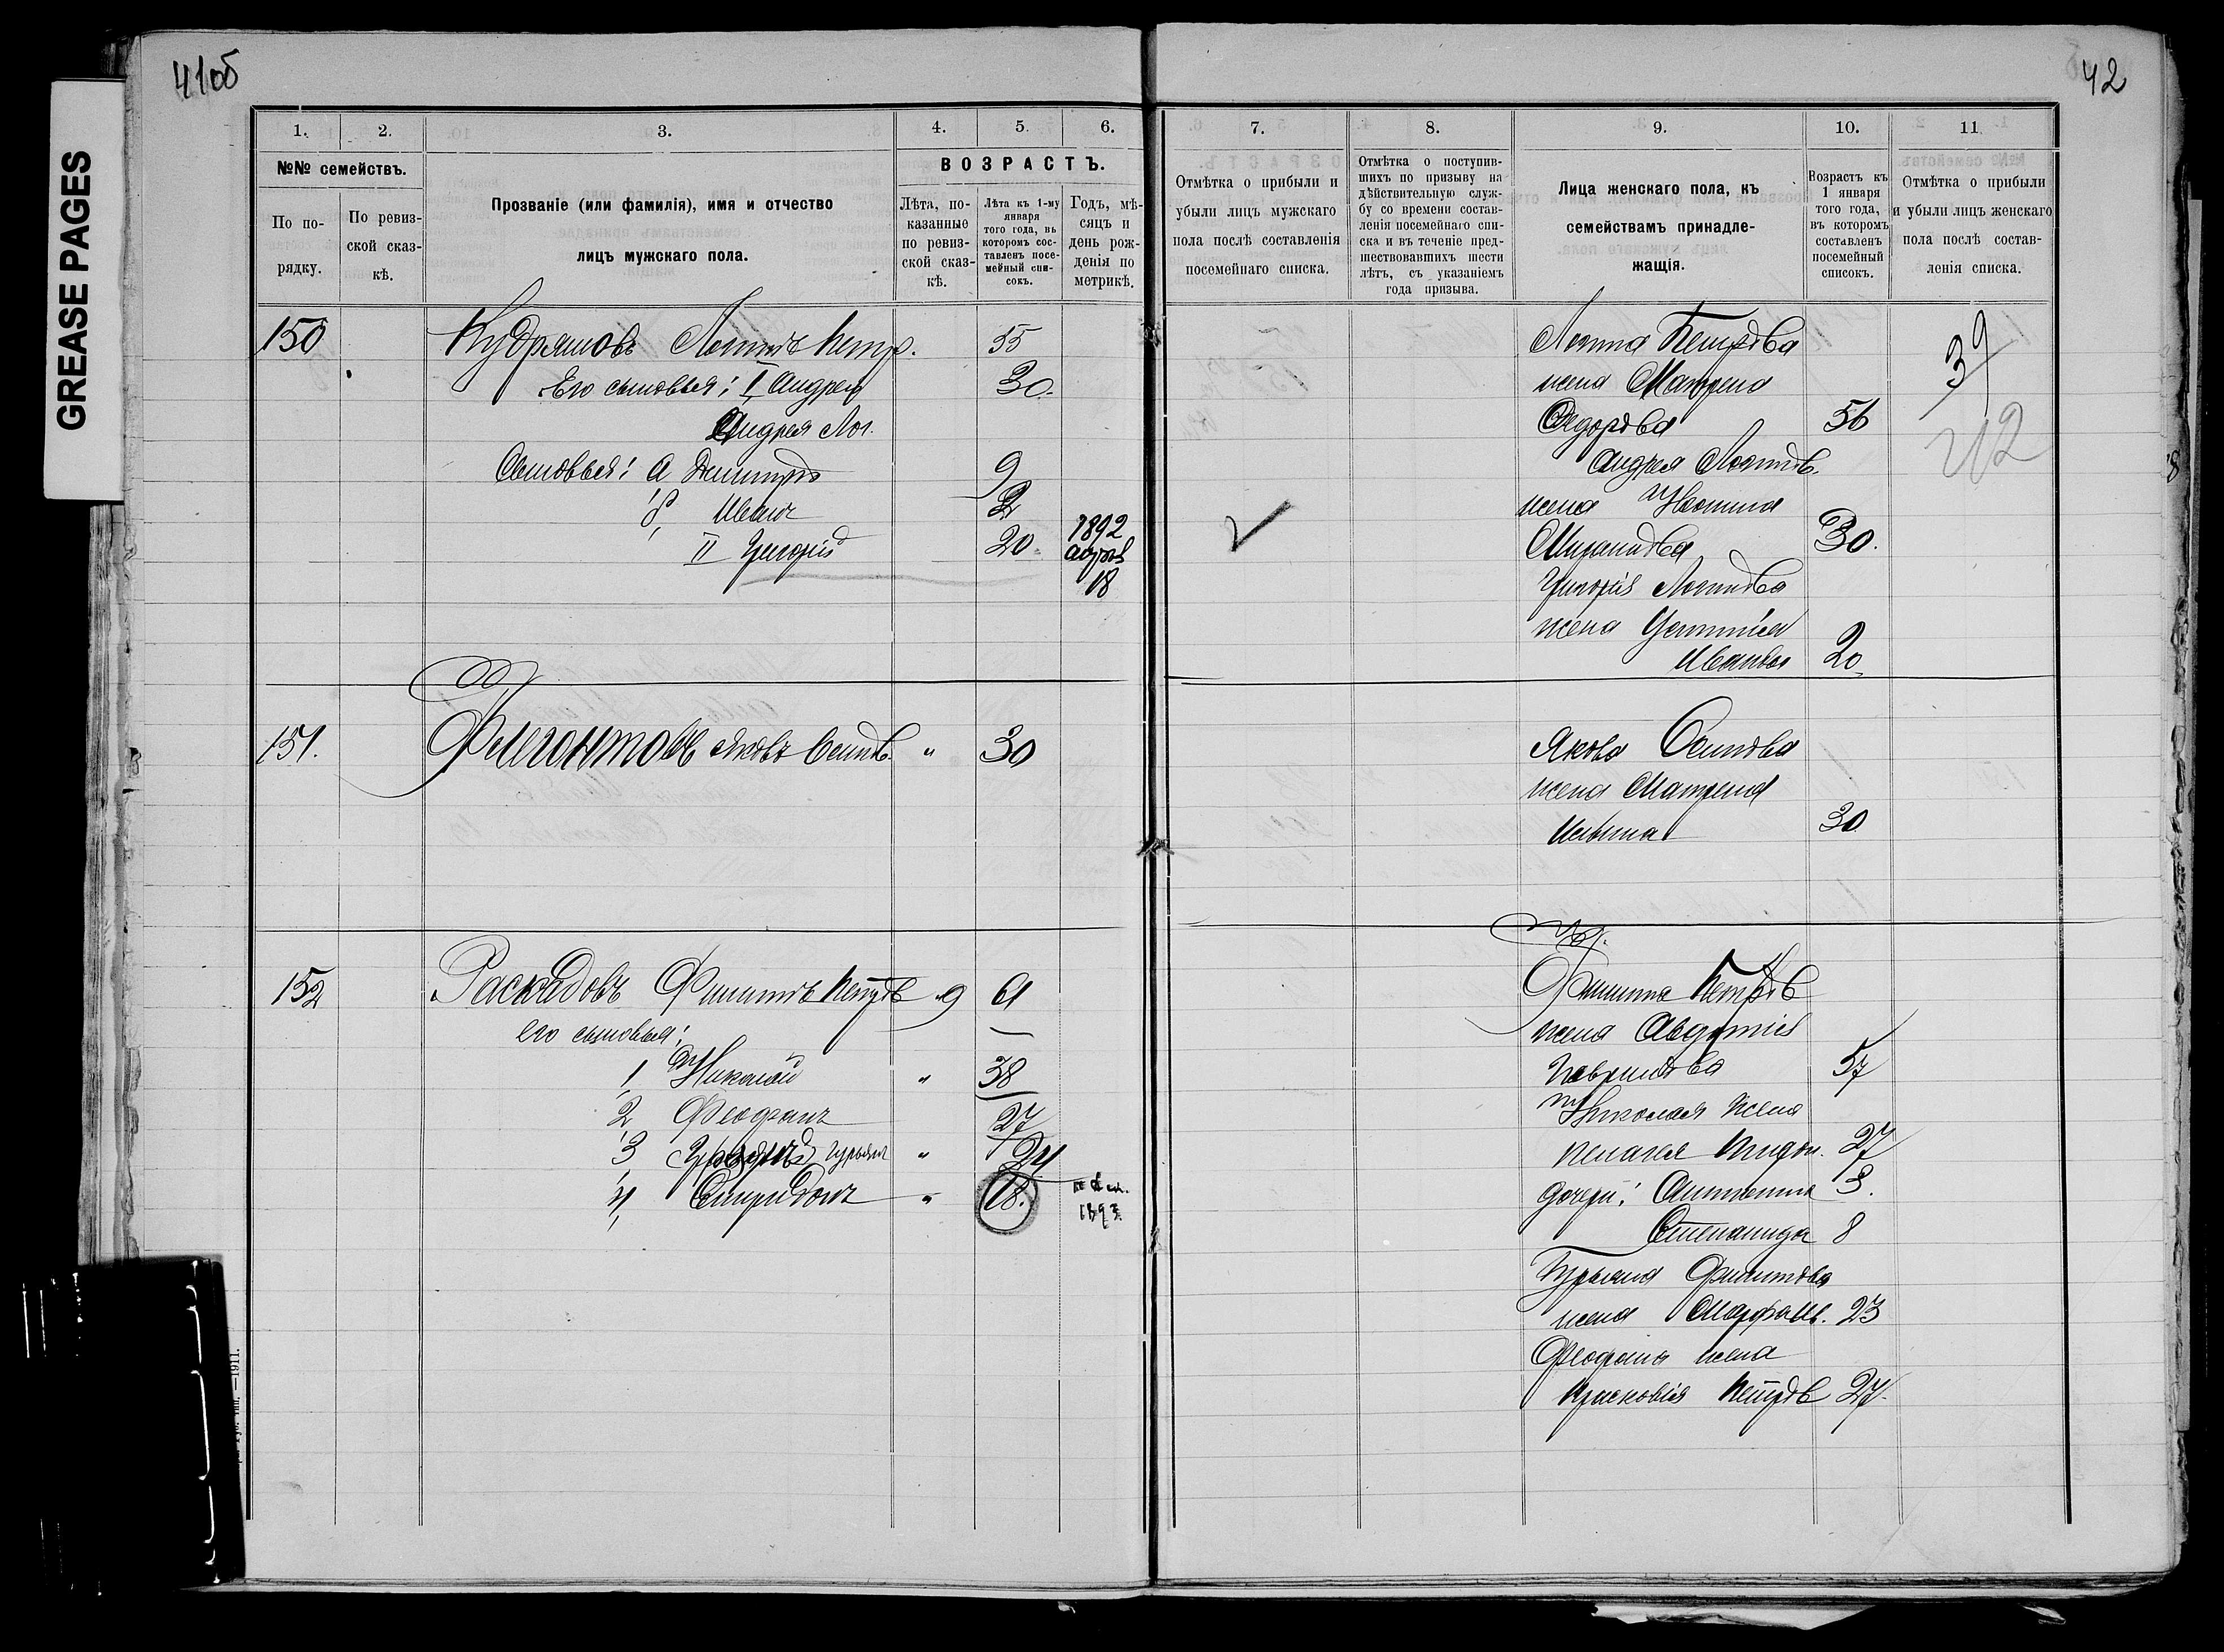 41об
42
GREASE PAGES
1. 2. 3. 4. 5. 6.
№№ семействъ.
По по-
рядку.
По ревиз-
ской сказ-
кѣ.
Прозваніе (или фамилія), имя и отчество
лицъ мужскаго пола.
ВОЗРАСТЪ.
Лѣта, по-
казанные
по ревиз-
ской сказ-
кѣ.
Лѣта къ 1-му
января
того года, въ
которомъ сос-
тавленъ посе-
мейный спи-
сокъ.
Годъ, мѣ-
сяцъ и
день рож-
денія по
метрикѣ.
150 Кудряшовъ Логинъ Петр. 55
Его сыновья: I Андрей 30.
Андрея Лог.
Сыновья: а Дмитрій 9
б, Иванъ 2
II Григорій 20 1892
18
151. Филегонтовъ Яковъ Осипов. " 30
152 Раскадовъ Филиппъ Петров 9 61
его сыновья:
1, Николай " 38
2 Феофанъ 27
3 Гурьянъ " 24
4, Спиридонъ " 18.
1893
1911.
7. 8. 9. 10. 11
Отмѣтка о прибыли и
убыли лицъ мужскаго
пола послѣ составленія
посемейнаго списка.
Отмѣтка о поступив-
шихъ по призыву на
дѣйствительную служ-
бу со времени состав-
ленія посемейнаго спи-
ска и въ теченіе пред-
шествовавшихъ шести
лѣтъ, съ указаніемъ
года призыва.
Лица женскаго пола, къ
семействамъ принадле-
жащія.
Возрастъ къ
1 января
того года,
въ которомъ
составленъ
посемейный
списокъ.
Отмѣтка о прибыли
и убыли лицъ женскаго
пола послѣ состав-
ленія списка.
Логина Петрова
жена Матрена 39
Федорова 56
42
Андрея Логинов.
жена
30.
Григорія Логинова
жена
Иванова 20
Якова Осипова
жена Матрена
Ильина 30
Филиппа Петров
жена Авдотія
Гаврилова 57
Николая жена
Пелагея 27
дочери: Антонина 3.
Степанида 8
Гурьяна Филиппова
жена Марфа Ив. 23
Феофана жена
Прасковія Петров 27.